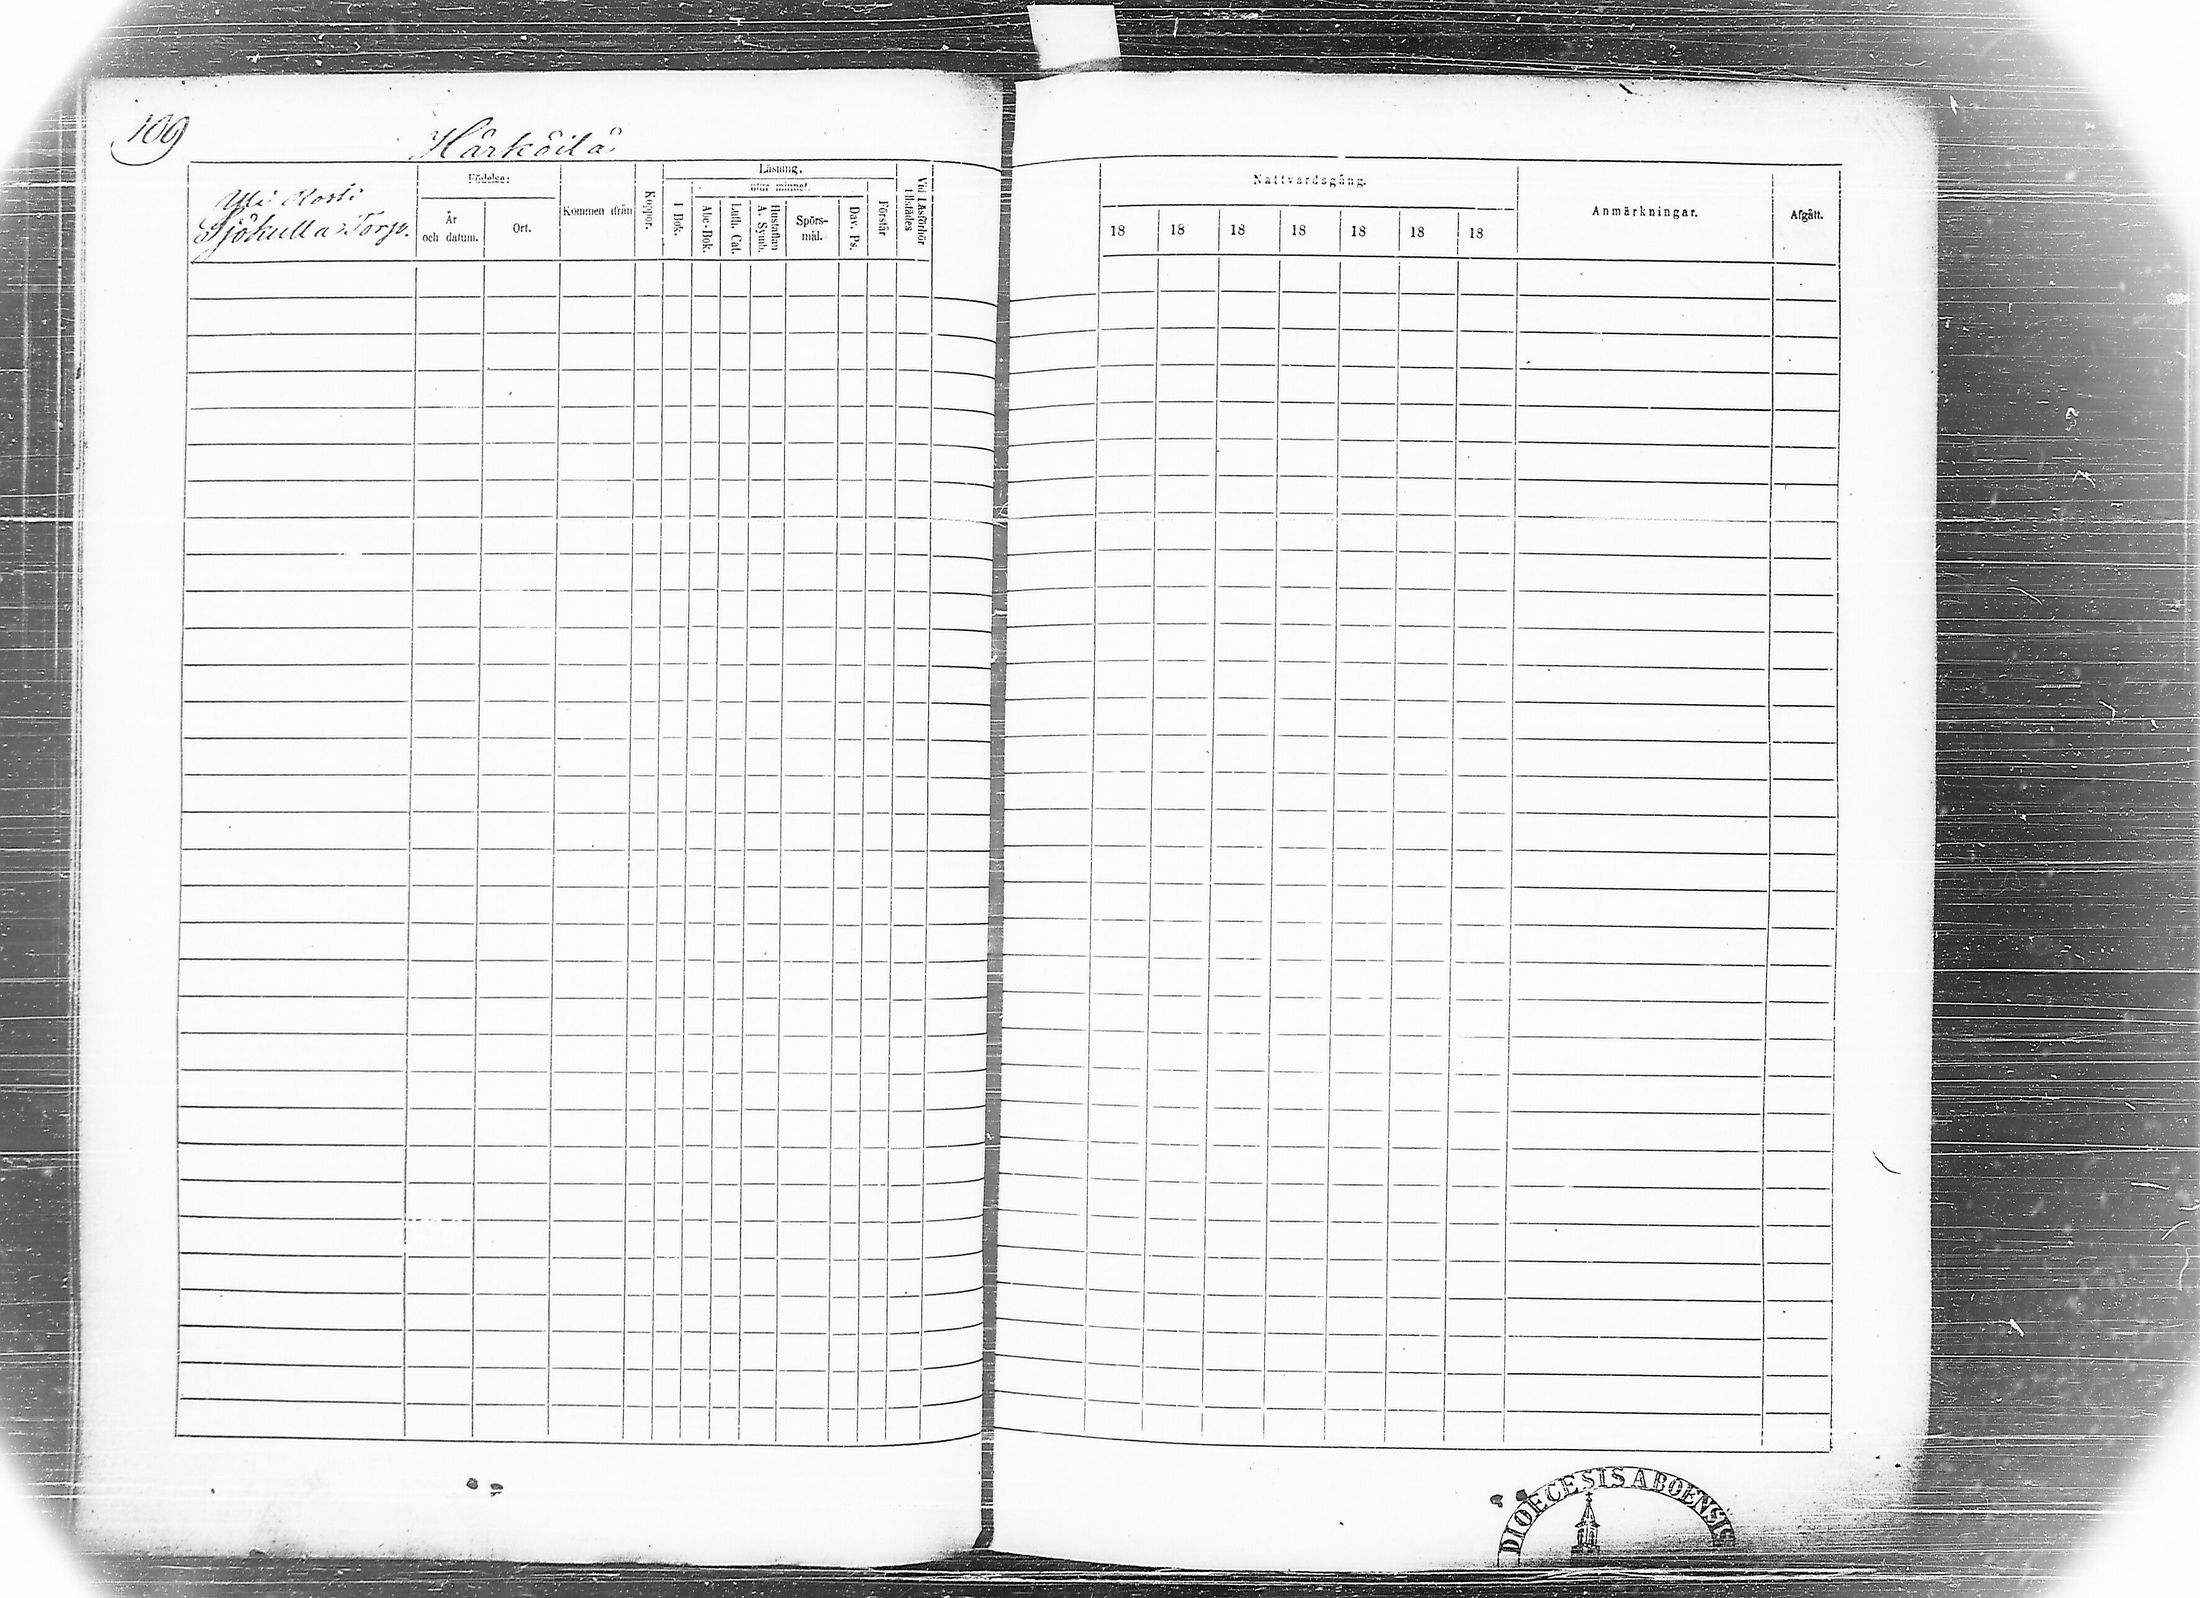 109
Härköilä
Yli Kosti
Sjökulla Torp.
Födelse:
År
och datum.
Ort.
Kommen ifrån
Koppor.
Läsning,
utur minnet.
I Bok.
Abc-Bok.
Luth. Cat.
Hustaflan
A. Symb.
Spörs-
mål.
Dav. Ps.
Förstår
Vid Läsförhör
tillstädes
Nattvardsgång.
18 18 18 18 18 18 18
Anmärkningar.
Afgått.
DIOECESIS ABOENSIS